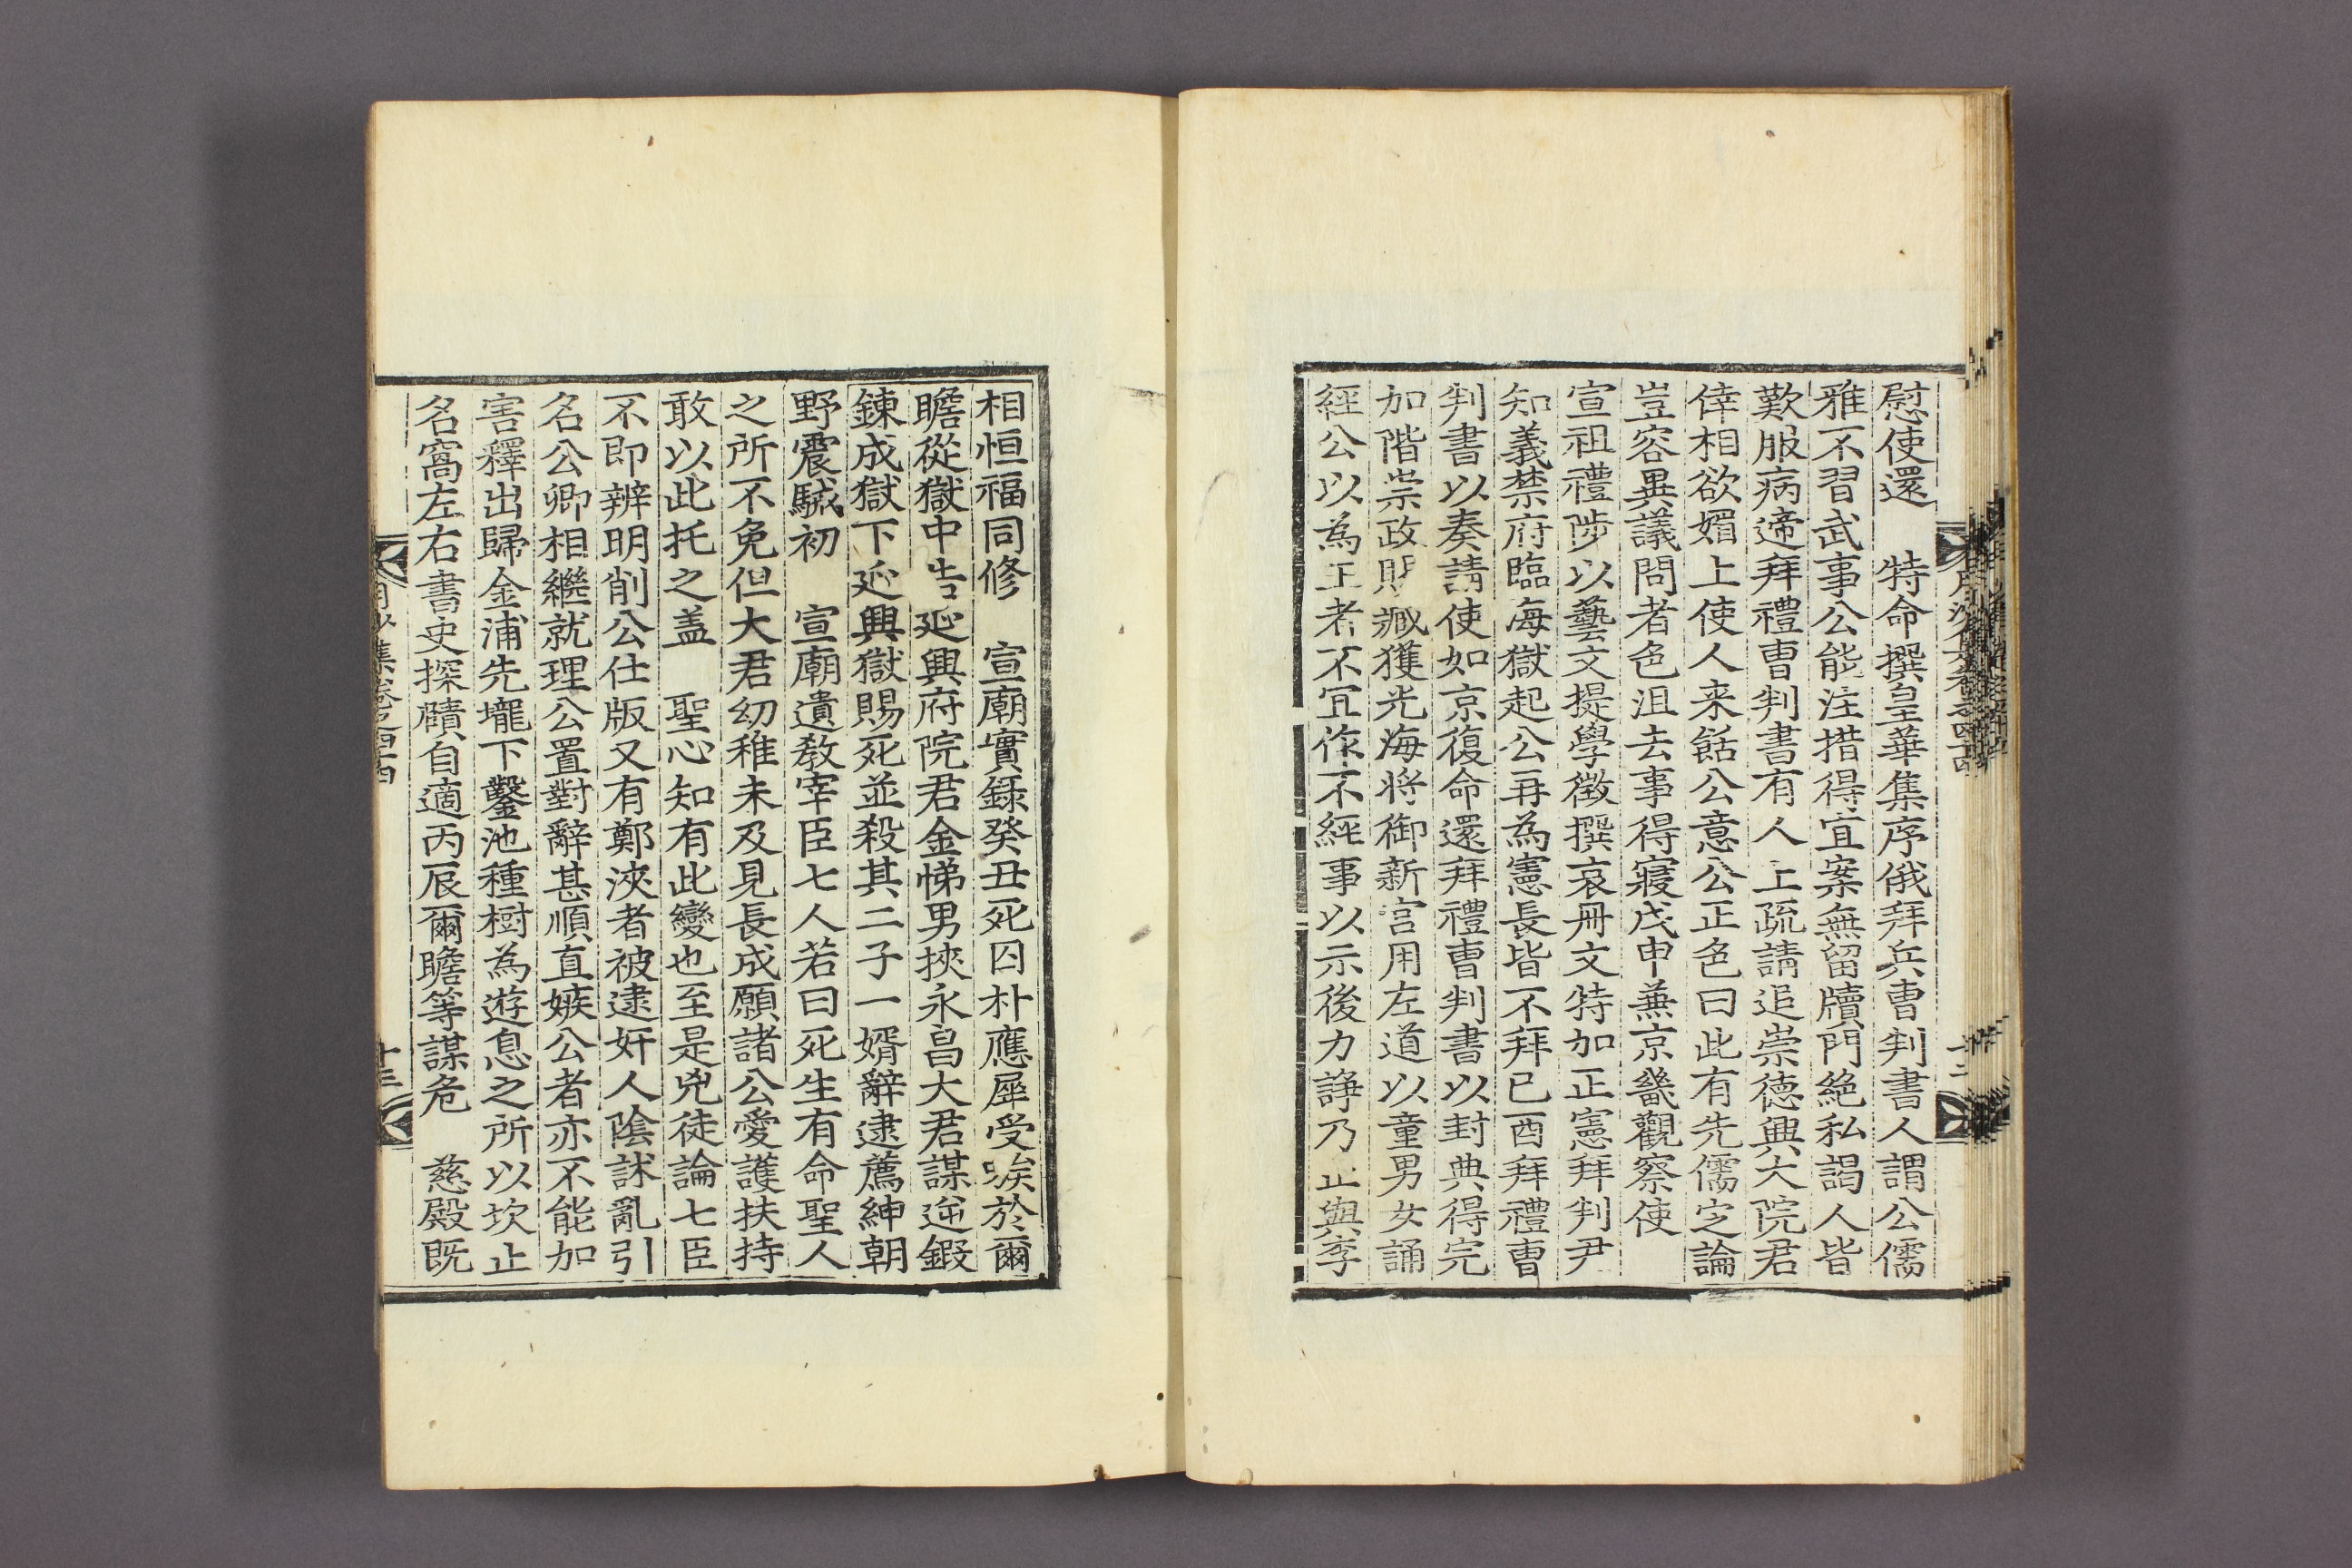 慰使還　特命撰皇華集序俄拜兵曹判書人謂公儒
雅不習武事公能注措得宜案無留牘門絶私謁人皆
歎服病遞拜禮曹判書有人上疏請追崇德興大院君
倖相欲媚上使人来餂公意公正色曰此有先儒定論
豈容異議問者色沮去事得寢戊申兼京畿觀察使
宣祖禮陟以藝文提學徵撰哀冊文特加正憲拜判尹
知義禁府臨海獄起公再為憲長皆不拜已酉拜禮曹
判書以奏請使如京復命還拜禮曹判書以封典得完
加階崇政賜臧獲光海將御新宮用左道以童男女誦
經公以為王者不宜作不經事以示後力諍乃止與李
相恒福同修　宣廟實錄癸丑死囚朴應犀受嗾於爾
瞻從獄中告延興府院君金悌男挾永昌大君謀逆鍛
鍊成獄下延興獄賜死並殺其二子一婿辭逮薦紳朝
野震駴初　宣廟遺敎宰臣七人若曰死生有命聖人
之所不免但大君幼稚未及見長成願諸公愛護扶持
敢以此托之盖　聖心知有此變也至是兇徒論七臣
不即辨明削公仕版又有鄭浹者被逮奸人陰訹亂引
名公卿相繼就理公置對辭甚順直嫉公者亦不能加
害釋出歸金浦先壠下鑿池種樹為遊息之所以坎止
名窩左右書史探賾自適丙辰爾瞻等謀危　慈殿旣
月沙集卷之四十四
十三